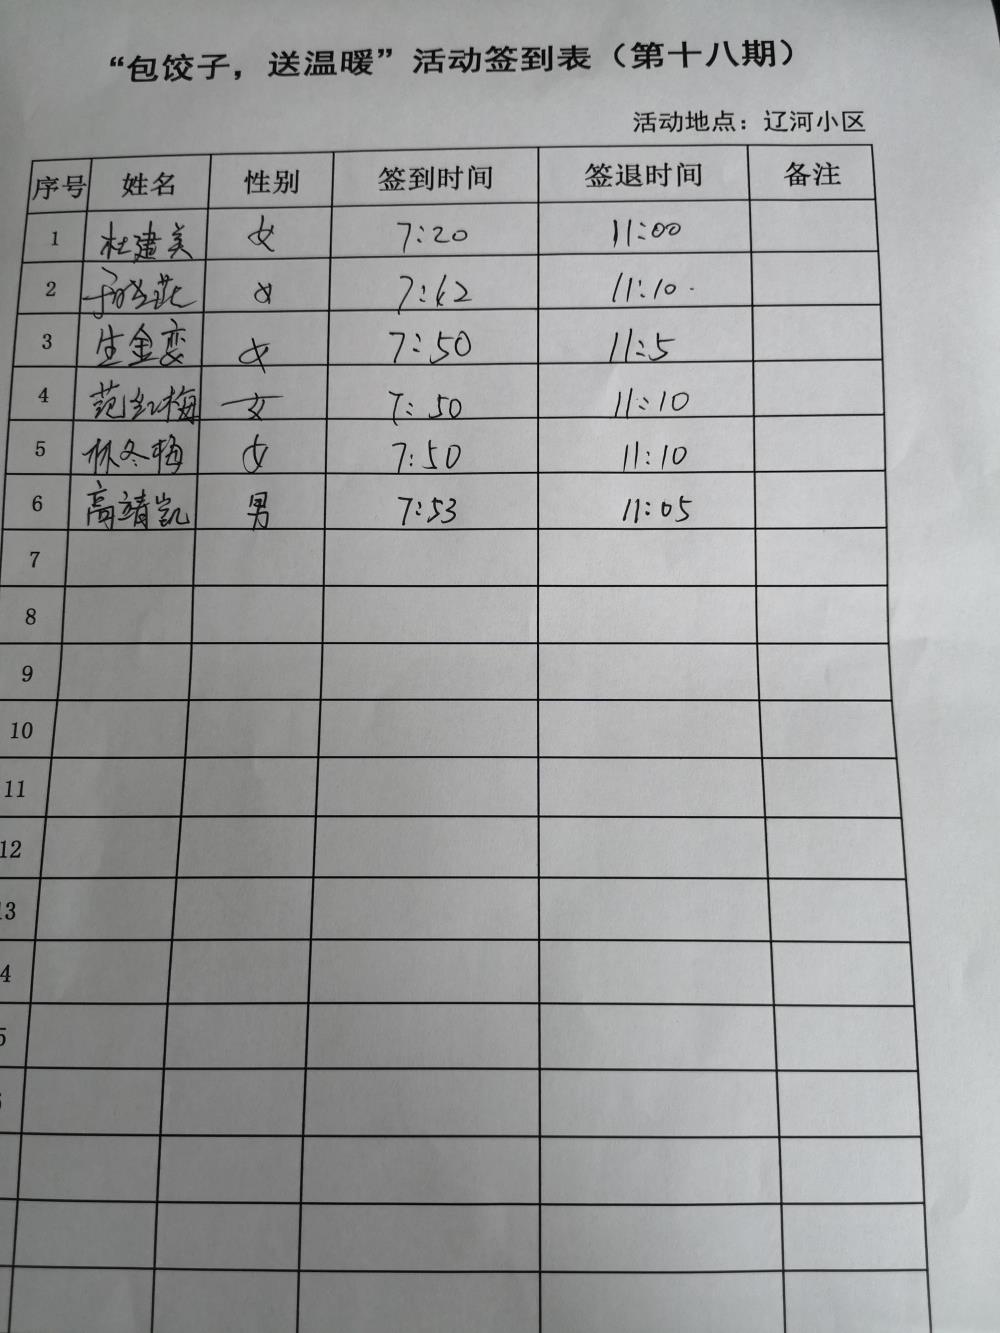 “包饺子，送温暖”活动签到表（第十八期）
活动地点：辽河小区
序号 姓名 性别 签到时间 签退时间 备注
1 杜建美 女 7:20 11:00
2 女 7:42 11:10
3 生金娈 女 7:50 11:5
4 范红梅 女 7:50 11:10
5 林冬梅 女 7:50 11:10
6 高靖凯 男 7:53 11:05
7
8
9
10
11
12
13
4
5